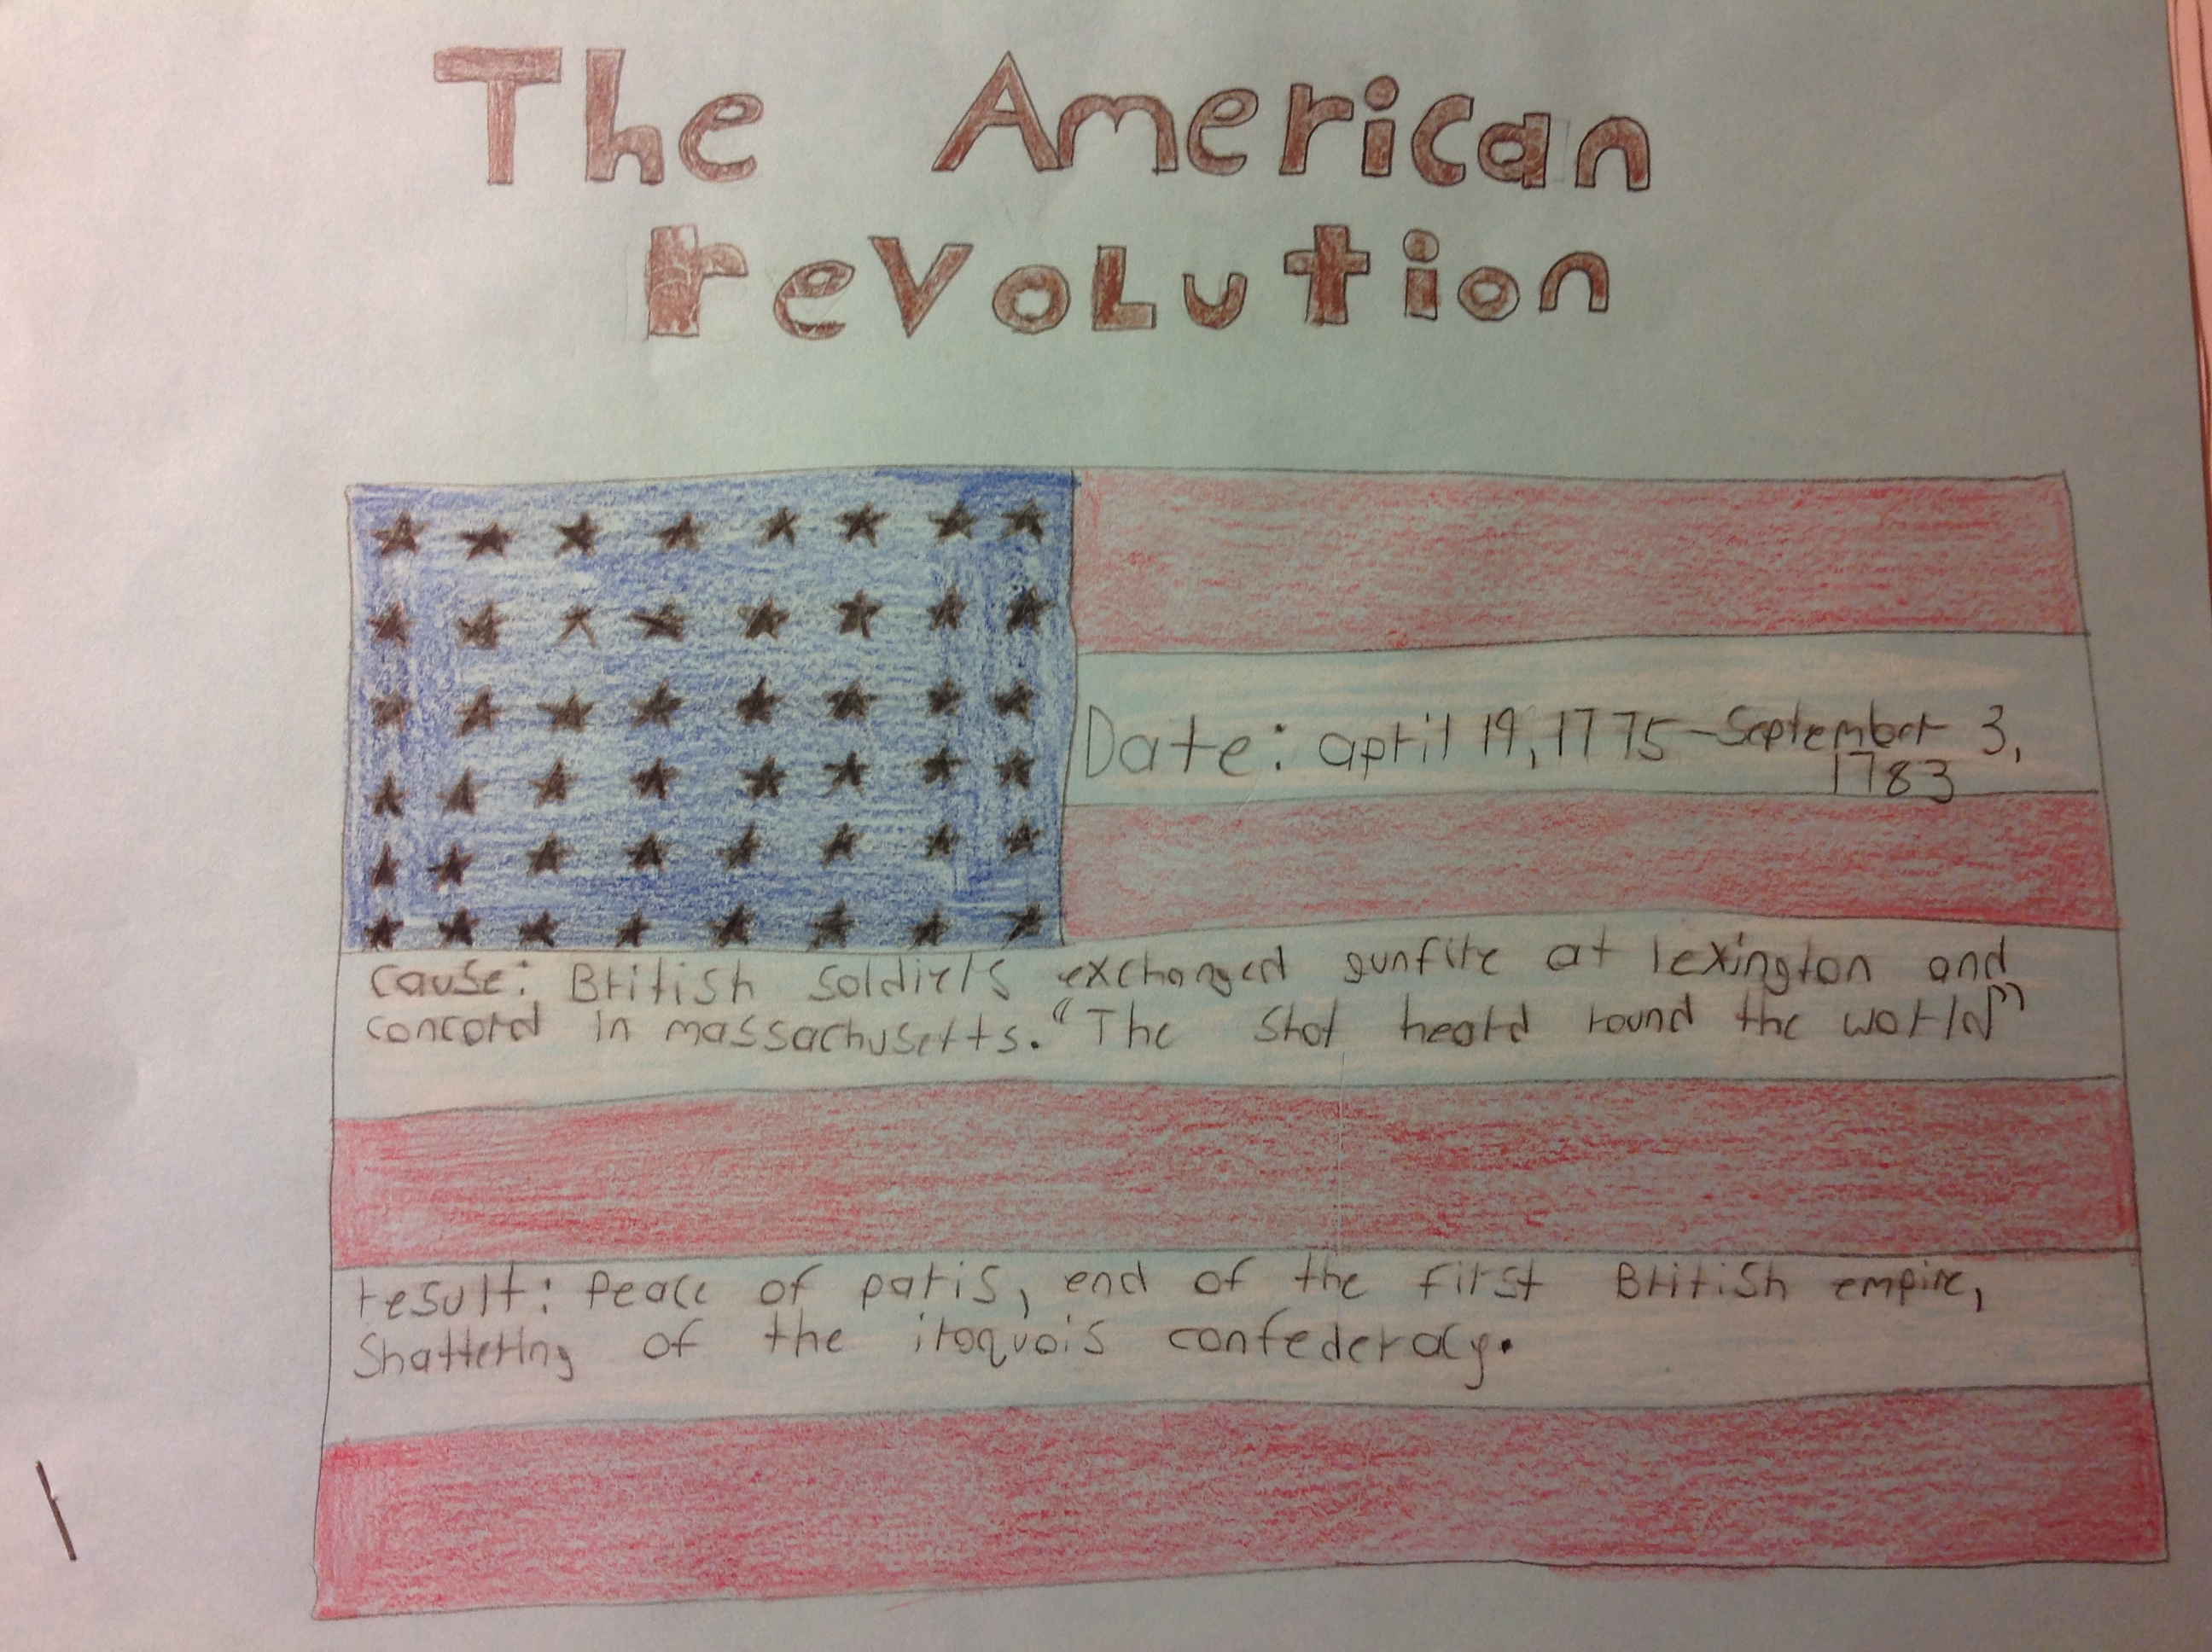 The American
reVoLution
Date: april 19, 1775 - September 3,
1783
cause: British soldiers exchanged gunfire at lexington and
concord in massachusetts. "The shot heard round the world"
result: Peace of paris, end of the first British empire,
Shattering of the iroquois confederacy.